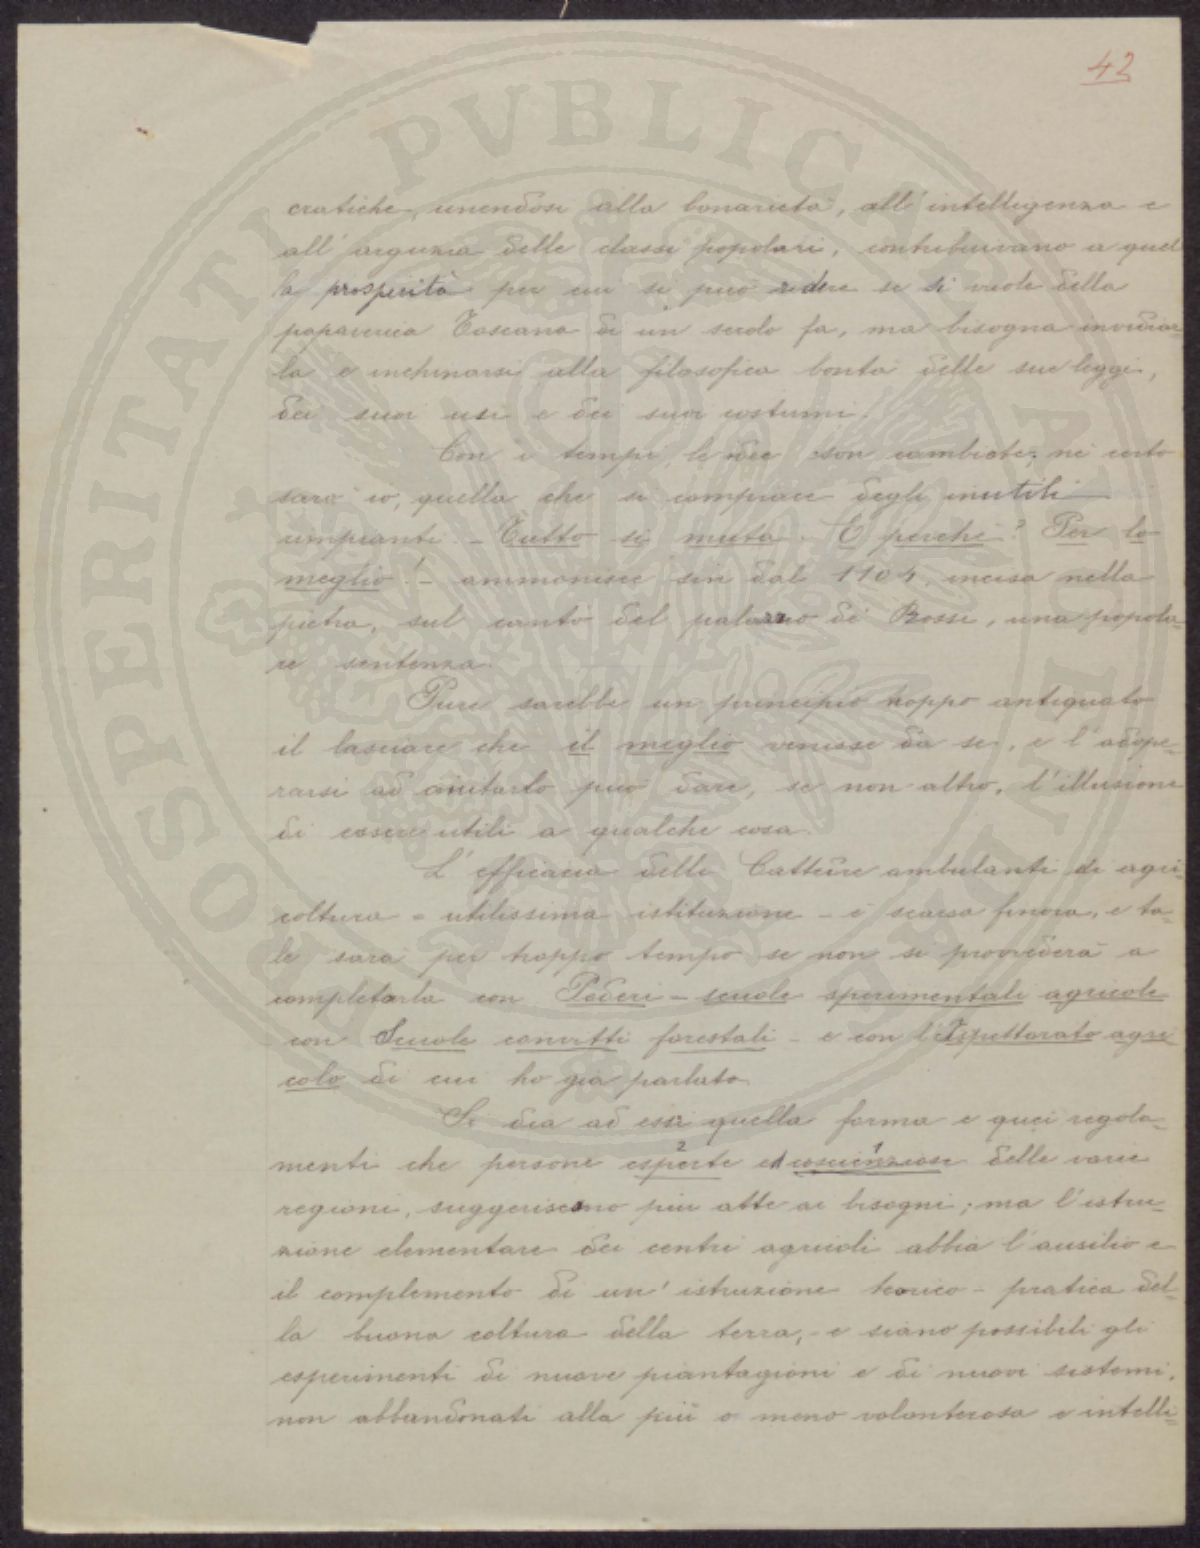 42
cratiche, unendosi alla bonarietà, all'intelligenza e
all'arguzia delle classi popolari, contribuivano a quel
la prosperità per cui si può ridere se si vuole della
paparercia Toscana di un secolo fa, ma bisogna invidiar=
la e inchinarsi alla filosofica bontà delle sue leggi,
dei suoi usi e dei suoi costumi.
Con i tempi, le idee son cambiate; nè certo
sarò io, quella che si compiace degli inutili
rimpianti. - Tutto si muta. E perchè? Per lo
meglio! - ammonisce sin dal 1104, incisa nella
pietra, sul canto del palazzo de' Rossi, una popola=
re sentenza.
Pure sarebbe un principio troppo antiquato
il lasciare che il meglio venisse da se, e l'adope=
rarsi ad aiutarlo può dare, se non altro, l'illusione
di essere utili a qualche cosa.
L'efficacia delle Cattedre ambulanti di agri=
coltura - utilissima istituzione - è scarsa finora, e ta=
le sarà per troppo tempo se non si provvederà a
completarla con Poderi - scuole sperimentali agricole
con Scuole convitti forestali - e con l'Ispettorato agri
colo di cui ho già parlato.
Si dia ad essi quella forma e quei regola=
menti che persone esperte 2 ed coscienziose 1 delle varie
regioni, suggeriscono più atte ai bisogni; ma l'istru=
zione elementare dei centri agricoli abbia l'ausilio e
il complemento di un'istruzione teorico - pratica del=
la buona coltura della terra, - e siano possibili gli
esperimenti di nuove piantagioni e di nuovi sistemi,
non abbandonati alla più o meno volonterosa e intelli=
PROSPERITATI PVBLICAE